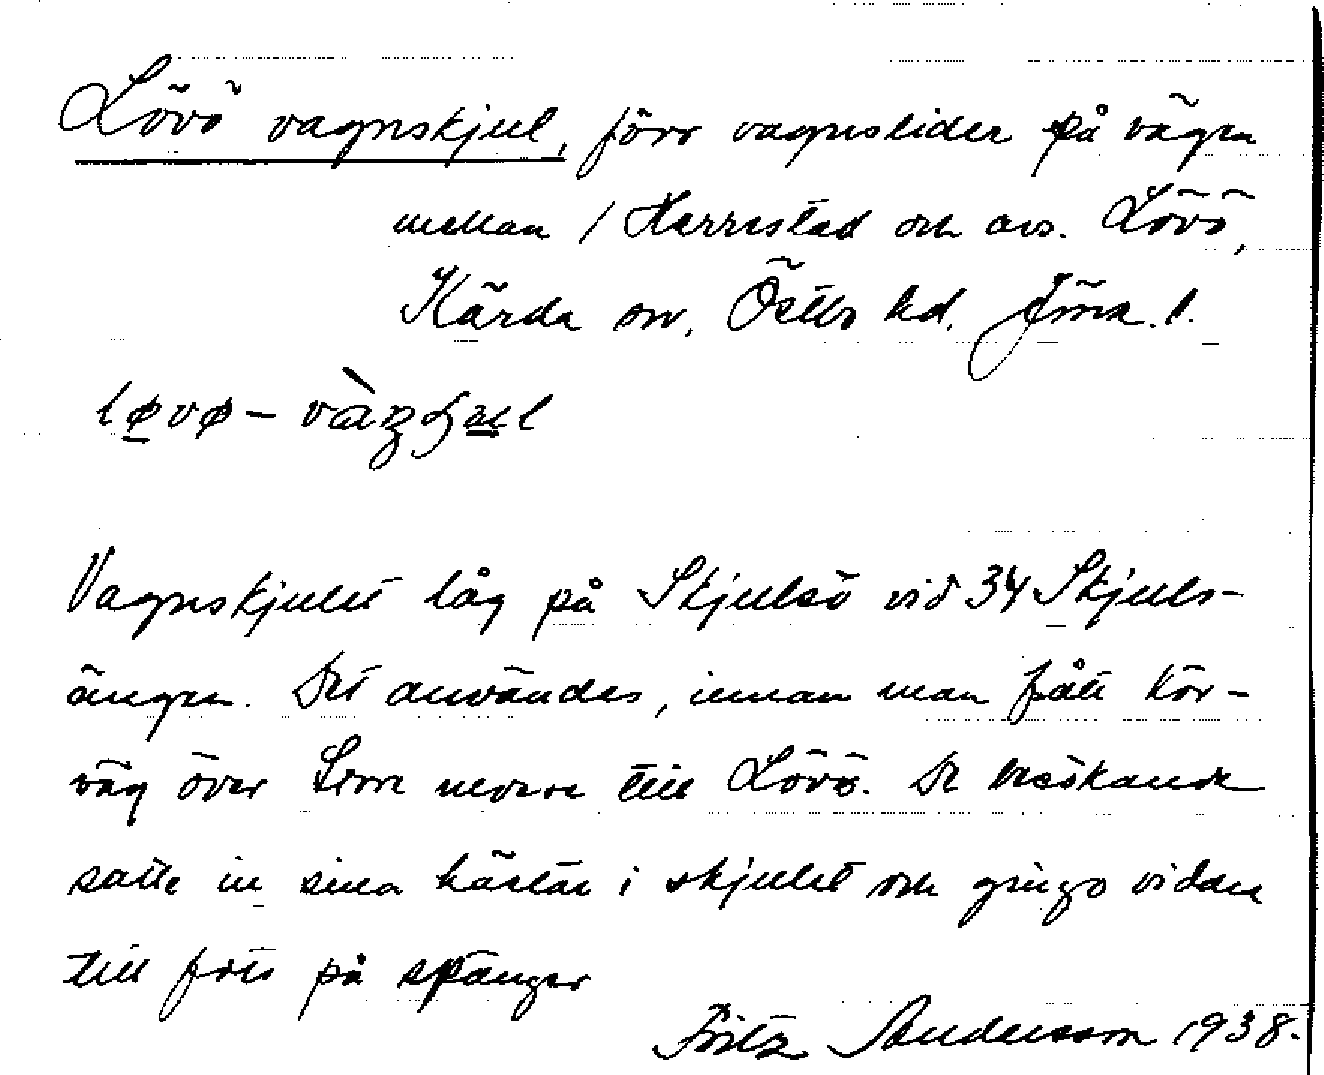 Lövö vagnskjul, förr vagnslider på vägen
mellan / Harrestad och avs. Lövö,
Kärda sn, Östbo hd. Jönk. l.
løvø – vàŋʃul
Vagnskjulet låg på Skjulsö vid 34 Skjuls-
ängen. Det användes, innan man fått kör-
väg över till Lövö. De besökande
satte in sina hästar i skjulet och gingo vidare
till fots på spänger
Fritz Andersson 1938.